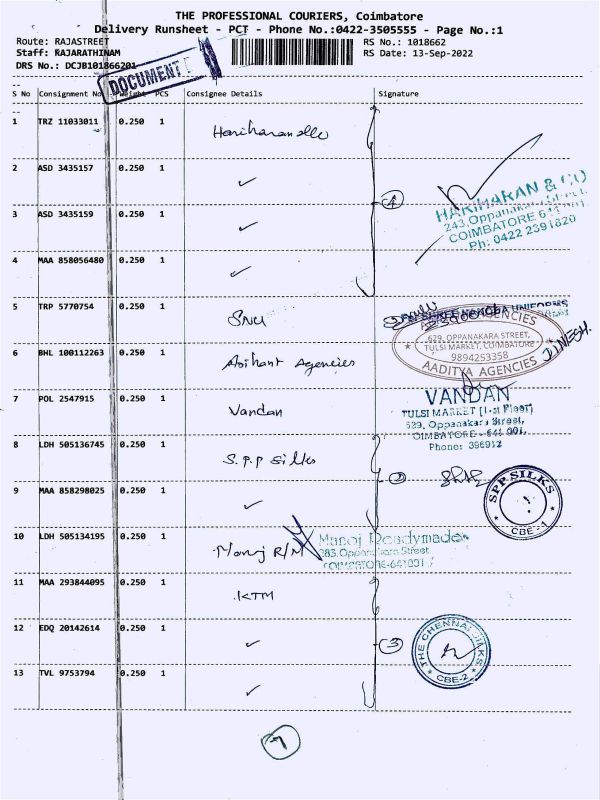 THE PROFESSIONAL COURIERS, Coimbatore
Delivery Runsheet - PCT - Phone No.:0422-3505555 - Page No.:1
Route: RAJASTREET RS No.: 1018662
Staff: RAJARATHINAM RS Date: 13-Sep-2022
DRS No.: DCJB101866201
DOCUMENT
S No Consignment No Weight PCS Consignee Details Signature
1 TRZ 11033011 0.250 1
2 ASD 3435157 0.250 1 ✓
3 ASD 3435159 0.250 1 ✓ 4
HARIHARAN & CO
243, Oppanakara Street,
COIMBATORE 641 001
Ph: 0422 2391820
4 MAA 858056480 0.250 1 ✓
5 TRP 5770754 0.250 1
UNIFORMS
AGENCIES
629, OPPANAKARA STREET,
TULSI MARKET, COIMBATORE
9894253358
AADITYA AGENCIES
DINESH.
6 BHL 100112263 0.250 1 Arihant Agencies
7 POL 2547915 0.250 1 Vandan
VANDAN
TULSI MARKET (I-st Floor)
529, Oppanakara Street,
COIMBATORE - 641 001.
Phone: 396912
8 LDH 505136745 0.250 1 S.P.P Silks
2
SPP SILKS
CBE-1
9 MAA 858298025 0.250 1 ✓
10 LDH 505134195 0.250 1 Manoj R/M
Manoj Readymades
383, Oppanakara Street
COIMBATORE-641001
11 MAA 293844095 0.250 1 KTM
12 EDQ 20142614 0.250 1 ✓ 3
THE CHENNAI SILKS
CBE-2
13 TVL 9753794 0.250 1 ✓
7